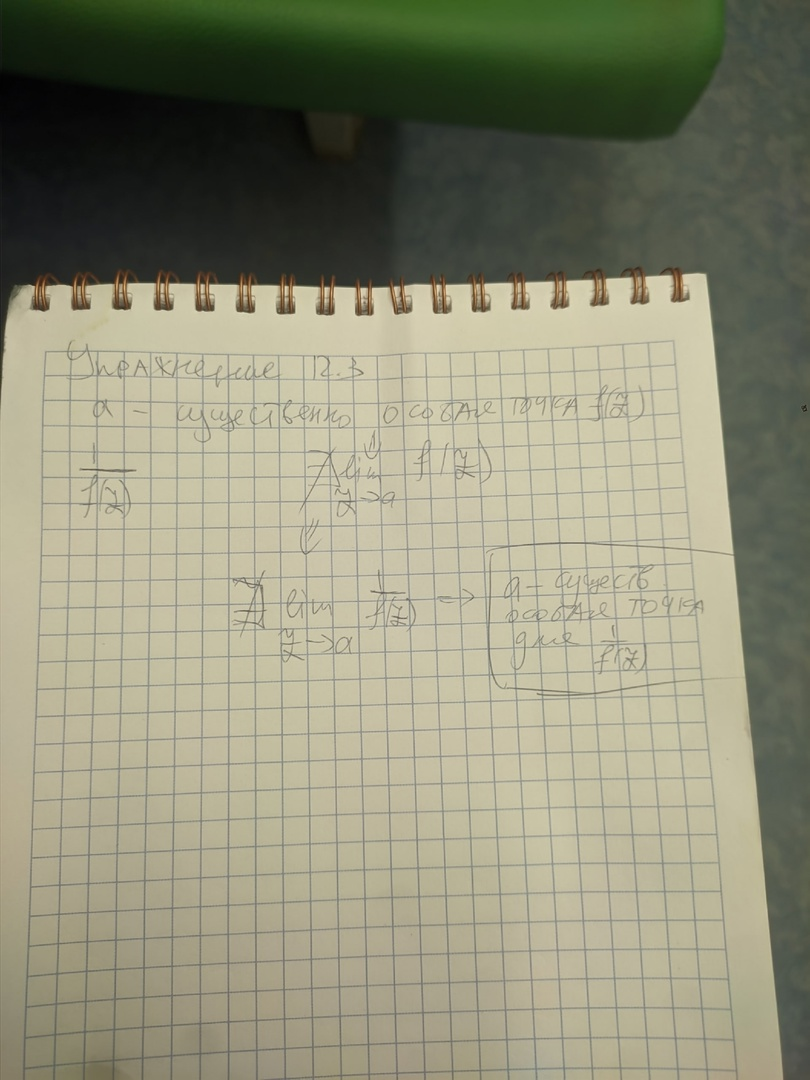 Упражнение 12.3
a - существенно особая точка f(z)
⇓
1/f(z) ∄ lim z→a f(z)
⇓
∄ lim z→a 1/f(z) => a - существ.
особая точка
для 1/f(z)